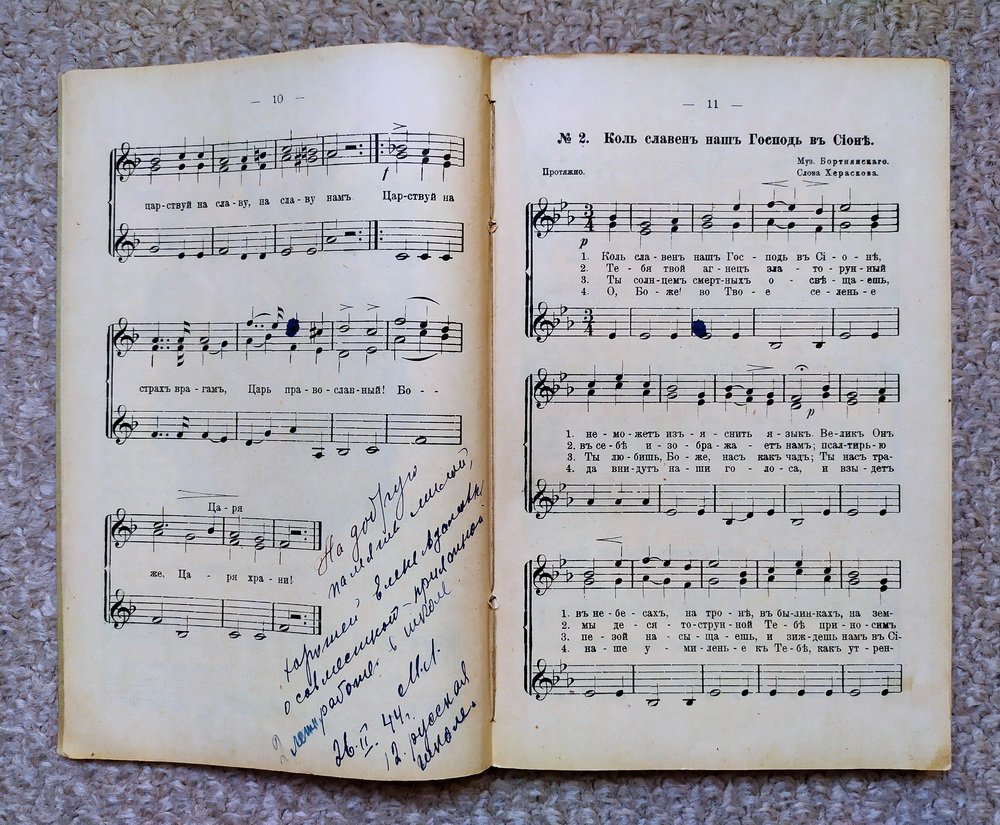 — 10 —
f
цар-ствуй на сла-ву, на сла-ву намъ Царствуй на
страхъ вра-гамъ, Царь пра-во-слав-ный! Бо--
Ца-ря
же, Ца-ря хра-ни!
На добрую
память милой,
хорошей Елене
о совместной
2 летн работе в школе
26.II.44. М.Л.
12 русская
школа.
— 11 —
№ 2. Коль славенъ нашъ Господь въ Сіонѣ.
Муз. Бортнянскаго.
Протяжно. Слова Хераскова.
p
1. Коль сла-венъ нашъ Гос-подь въ Сі-о-нѣ,
2. Те-бя твой аг-нецъ зла-то-рун-ный
3. Ты солн-цемъ смерт-ныхъ о-свѣ-ща-ешь,
4. О, Бо-же! во Тво-е се-лень-е
p
1. не-мо-жетъ изъ-я-снить я-зыкъ. Ве-ликъ Онъ
2. въ се-бѣ и-зо-бра-жа-етъ намъ; псал-тирь-ю
3. Ты лю-бишь, Бо-же, насъ какъ чадъ; Ты насъ тра-
4. да внид-утъ на-ши го-ло-са, и взы-детъ
1. въ не-бе-сахъ, на тро-нѣ, въ бы-лин-кахъ, на зем-
2. мы де-ся-то-струн-ной Те-бѣ при-но-симъ
3. пе-зой на-сы-ща-ешь, и зиж-дешь намъ въ Сі-
4. на-ше у-ми-лень-е къ Те-бѣ, какъ ут-рен-